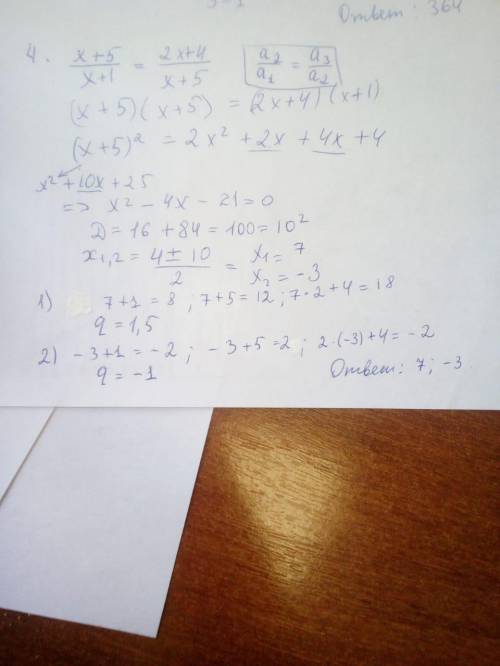 Ответ: 364
4. (x+5)/(x+1) = (2x+4)/(x+5) a₂/a₁ = a₃/a₂
(x+5)(x+5) = (2x+4)(x+1)
(x+5)² = 2x² + 2x + 4x + 4
x² + 10x + 25
=> x² - 4x - 21 = 0
D = 16 + 84 = 100 = 10²
x₁,₂ = (4 ± 10)/2 = x₁ = 7
x₂ = -3
1) 7+1 = 8 ; 7+5 = 12 ; 7·2+4 = 18
q = 1,5
2) -3+1 = -2 ; -3+5 = 2 ; 2·(-3)+4 = -2
q = -1 Ответ: 7; -3